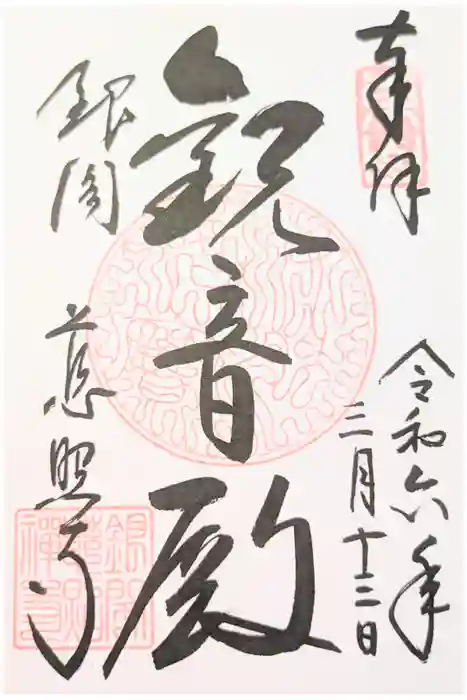 奉拝
令和六年
三月十三日
觀音殿
銀閣
慈照寺
銀閣
慈照
禅寺